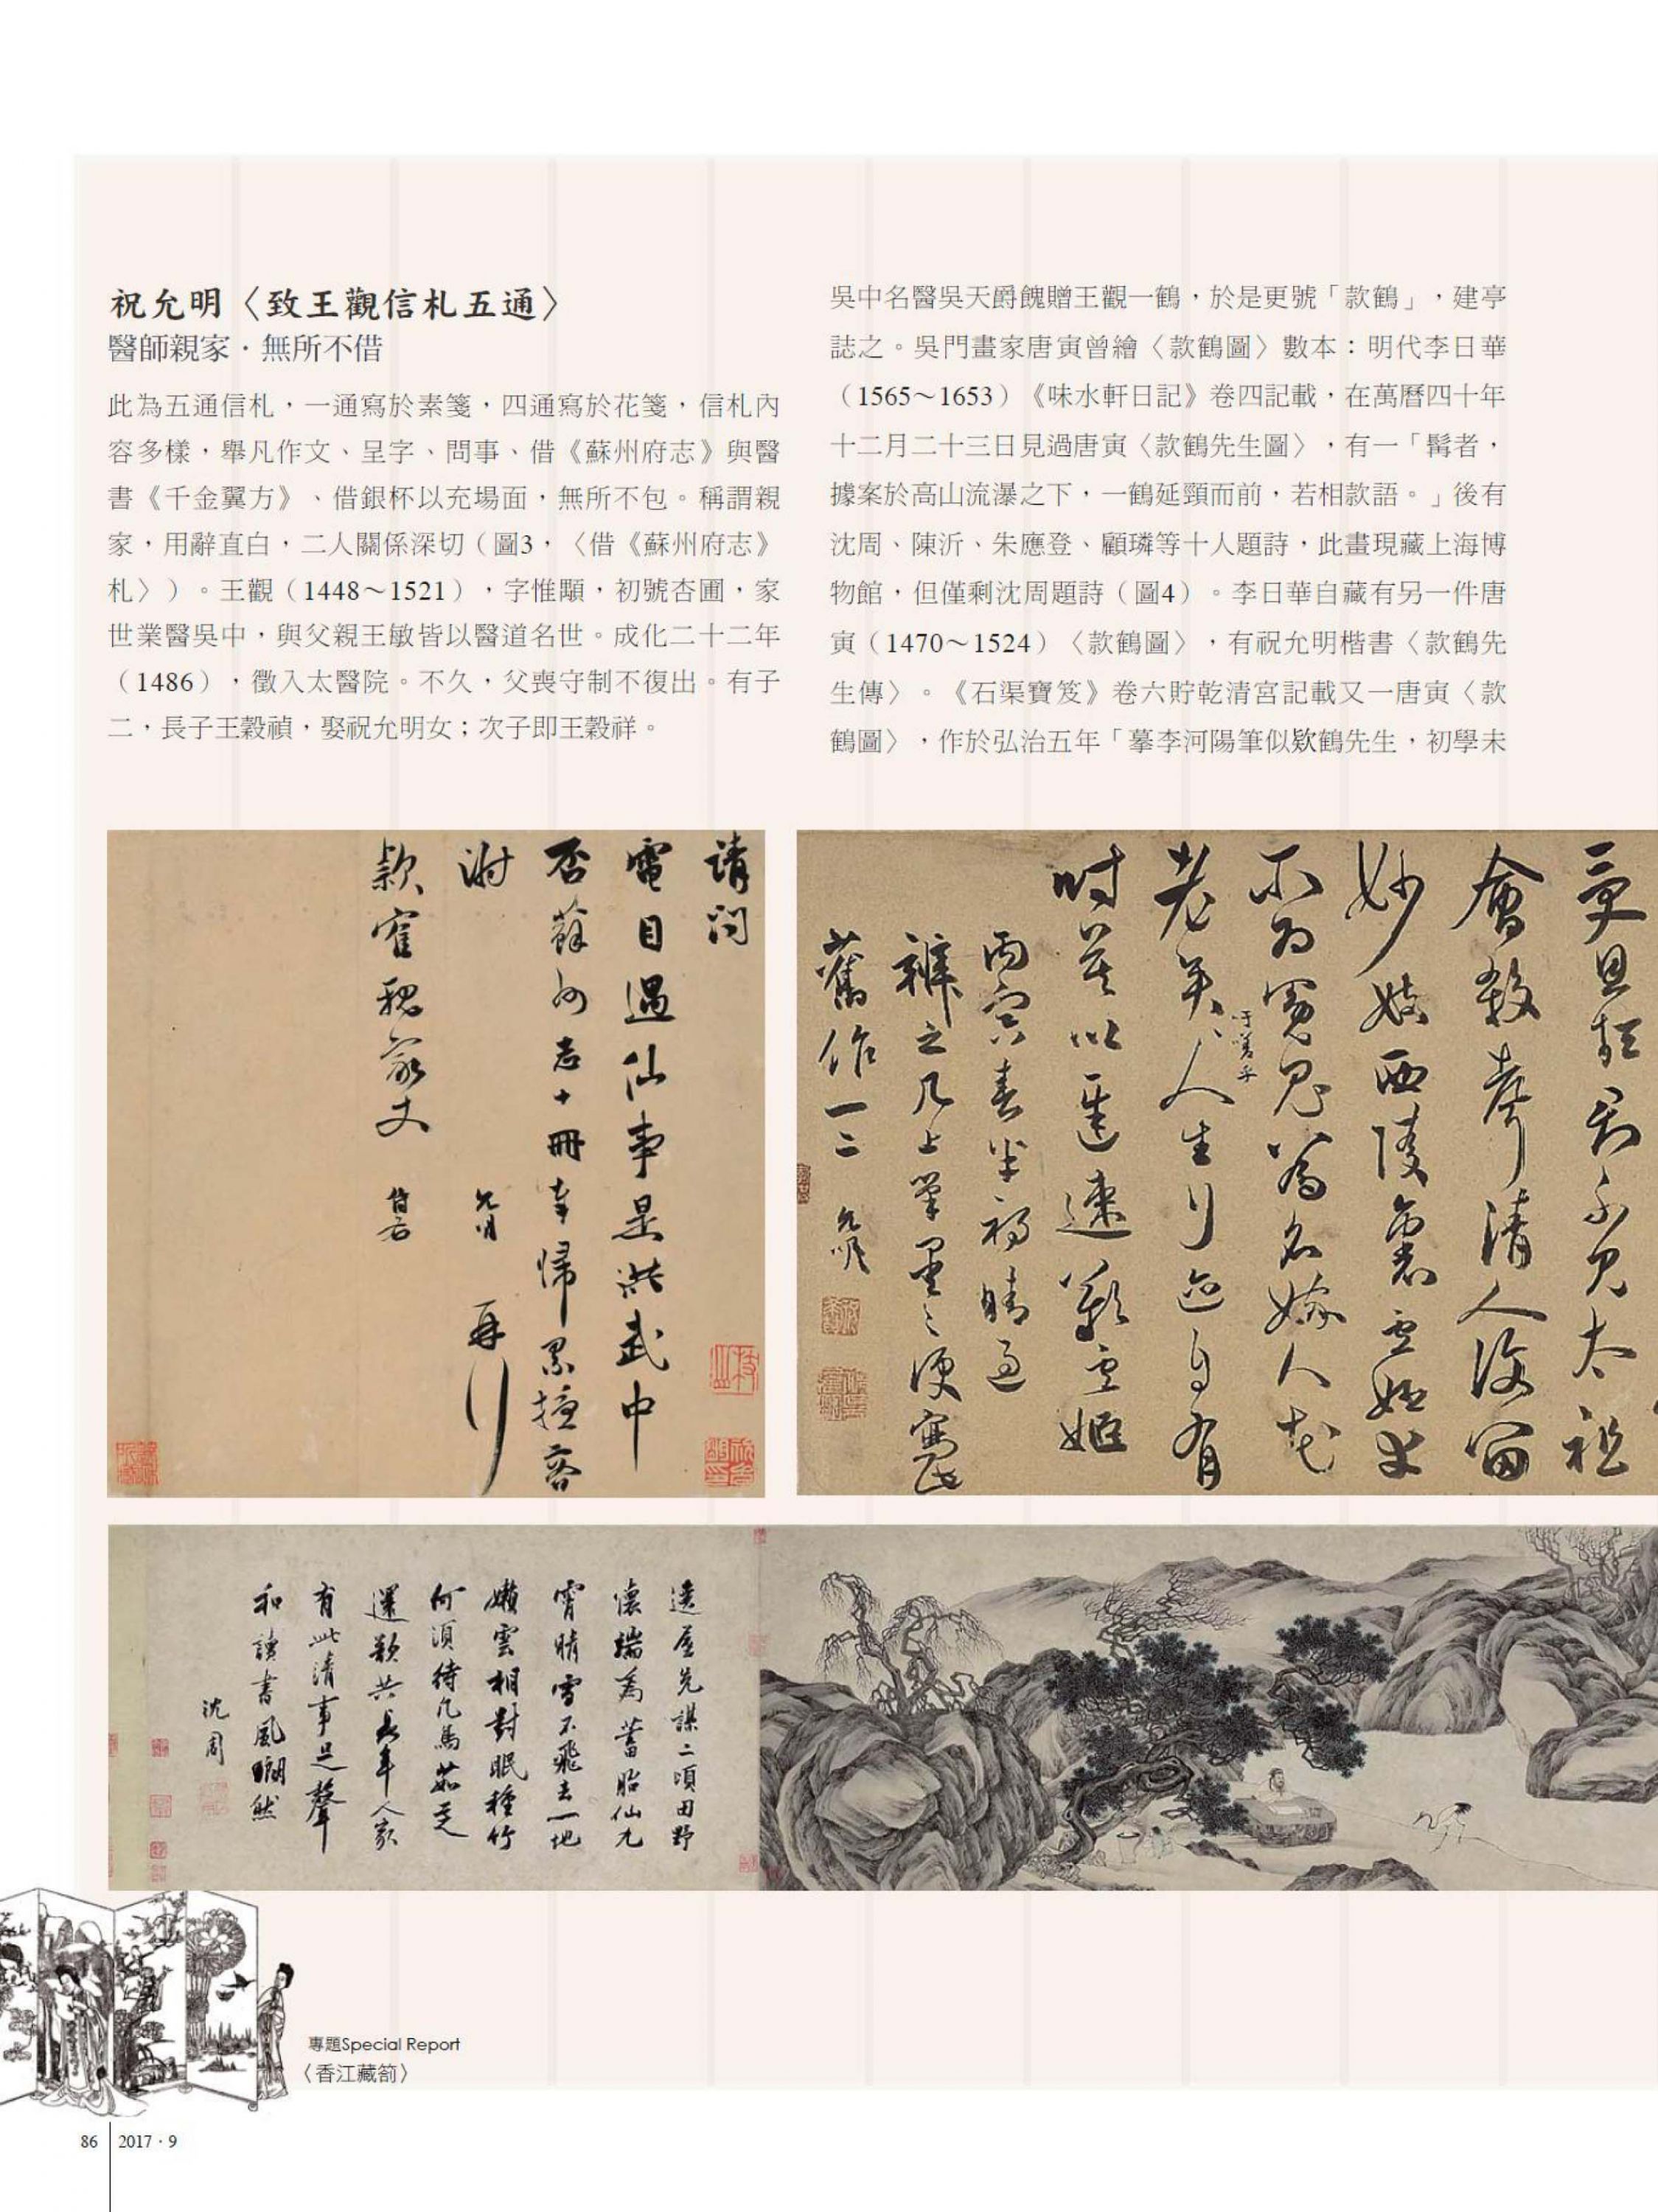 祝允明〈致王觀信札五通〉
醫師親家．無所不借
此為五通信札，一通寫於素箋，四通寫於花箋，信札內
容多樣，舉凡作文、呈字、問事、借《蘇州府志》與醫
書《千金翼方》、借銀杯以充場面，無所不包。稱謂親
家，用辭直白，二人關係深切（圖3，〈借《蘇州府志》
札〉）。王觀（1448～1521），字惟顒，初號杏圃，家
世業醫吳中，與父親王敏皆以醫道名世。成化二十二年
（1486），徵入太醫院。不久，父喪守制不復出。有子
二，長子王穀禎，娶祝允明女；次子即王穀祥。
吳中名醫吳天爵餽贈王觀一鶴，於是更號「款鶴」，建亭
誌之。吳門畫家唐寅曾繪〈款鶴圖〉數本：明代李日華
（1565～1653）《味水軒日記》卷四記載，在萬曆四十年
十二月二十三日見過唐寅〈款鶴先生圖〉，有一「髯者，
據案於高山流瀑之下，一鶴延頸而前，若相款語。」後有
沈周、陳沂、朱應登、顧璘等十人題詩，此畫現藏上海博
物館，但僅剩沈周題詩（圖4）。李日華自藏有另一件唐
寅（1470～1524）〈款鶴圖〉，有祝允明楷書〈款鶴先
生傳〉。《石渠寶笈》卷六貯乾清宮記載又一唐寅〈款
鶴圖〉，作於弘治五年「摹李河陽筆似欵鶴先生，初學未
請問
電目過仙事是洪武中
否蘇州志十冊幸歸
謝 允明 再
款寉親家丈
不為冤鬼為名嫁人
老矣人生行
時 以遲速 姬
丙寅春半初晴
之几上筆墨 便寫
舊作一二 允明
遶屋先謀二頃田野
懷端為蓄胎仙九
霄晴雪不飛去一地
嬾雲相對眠種竹
何須待凡馬茹芝
還歎共長年人家
有此清事
和讀書風
沈周
專題Special Report
〈香江藏箚〉
86
2017．9